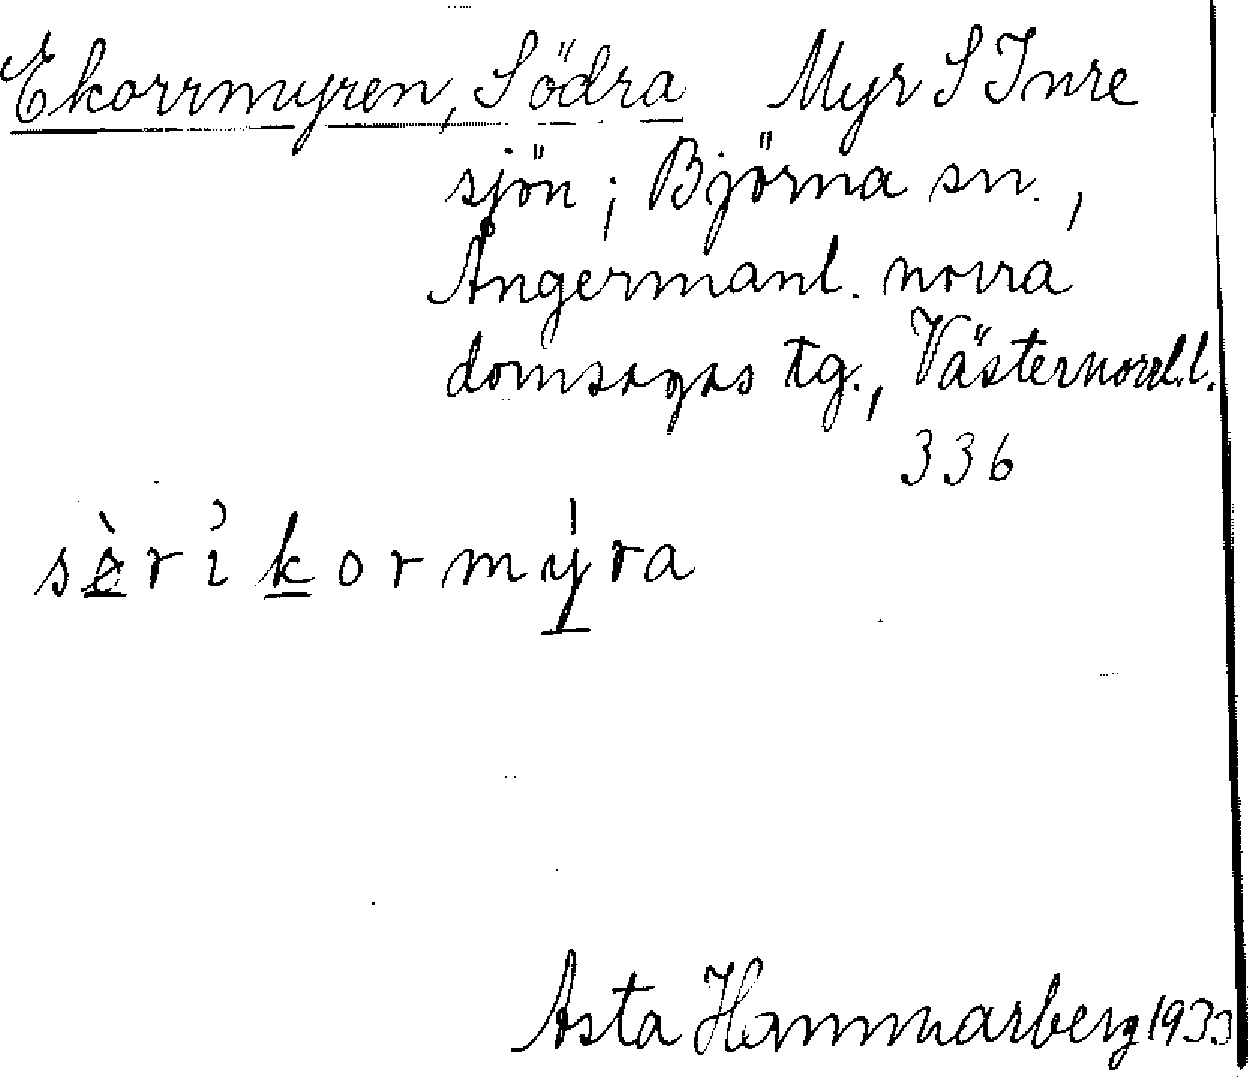 Ekorrmyren, Södra Myr S Inre
sjön; Björna sn.,
Ångermanl. norra
domsagas tg., Västernorrl.l.
336
sèrikormýra
Asta Hammarberg 1933